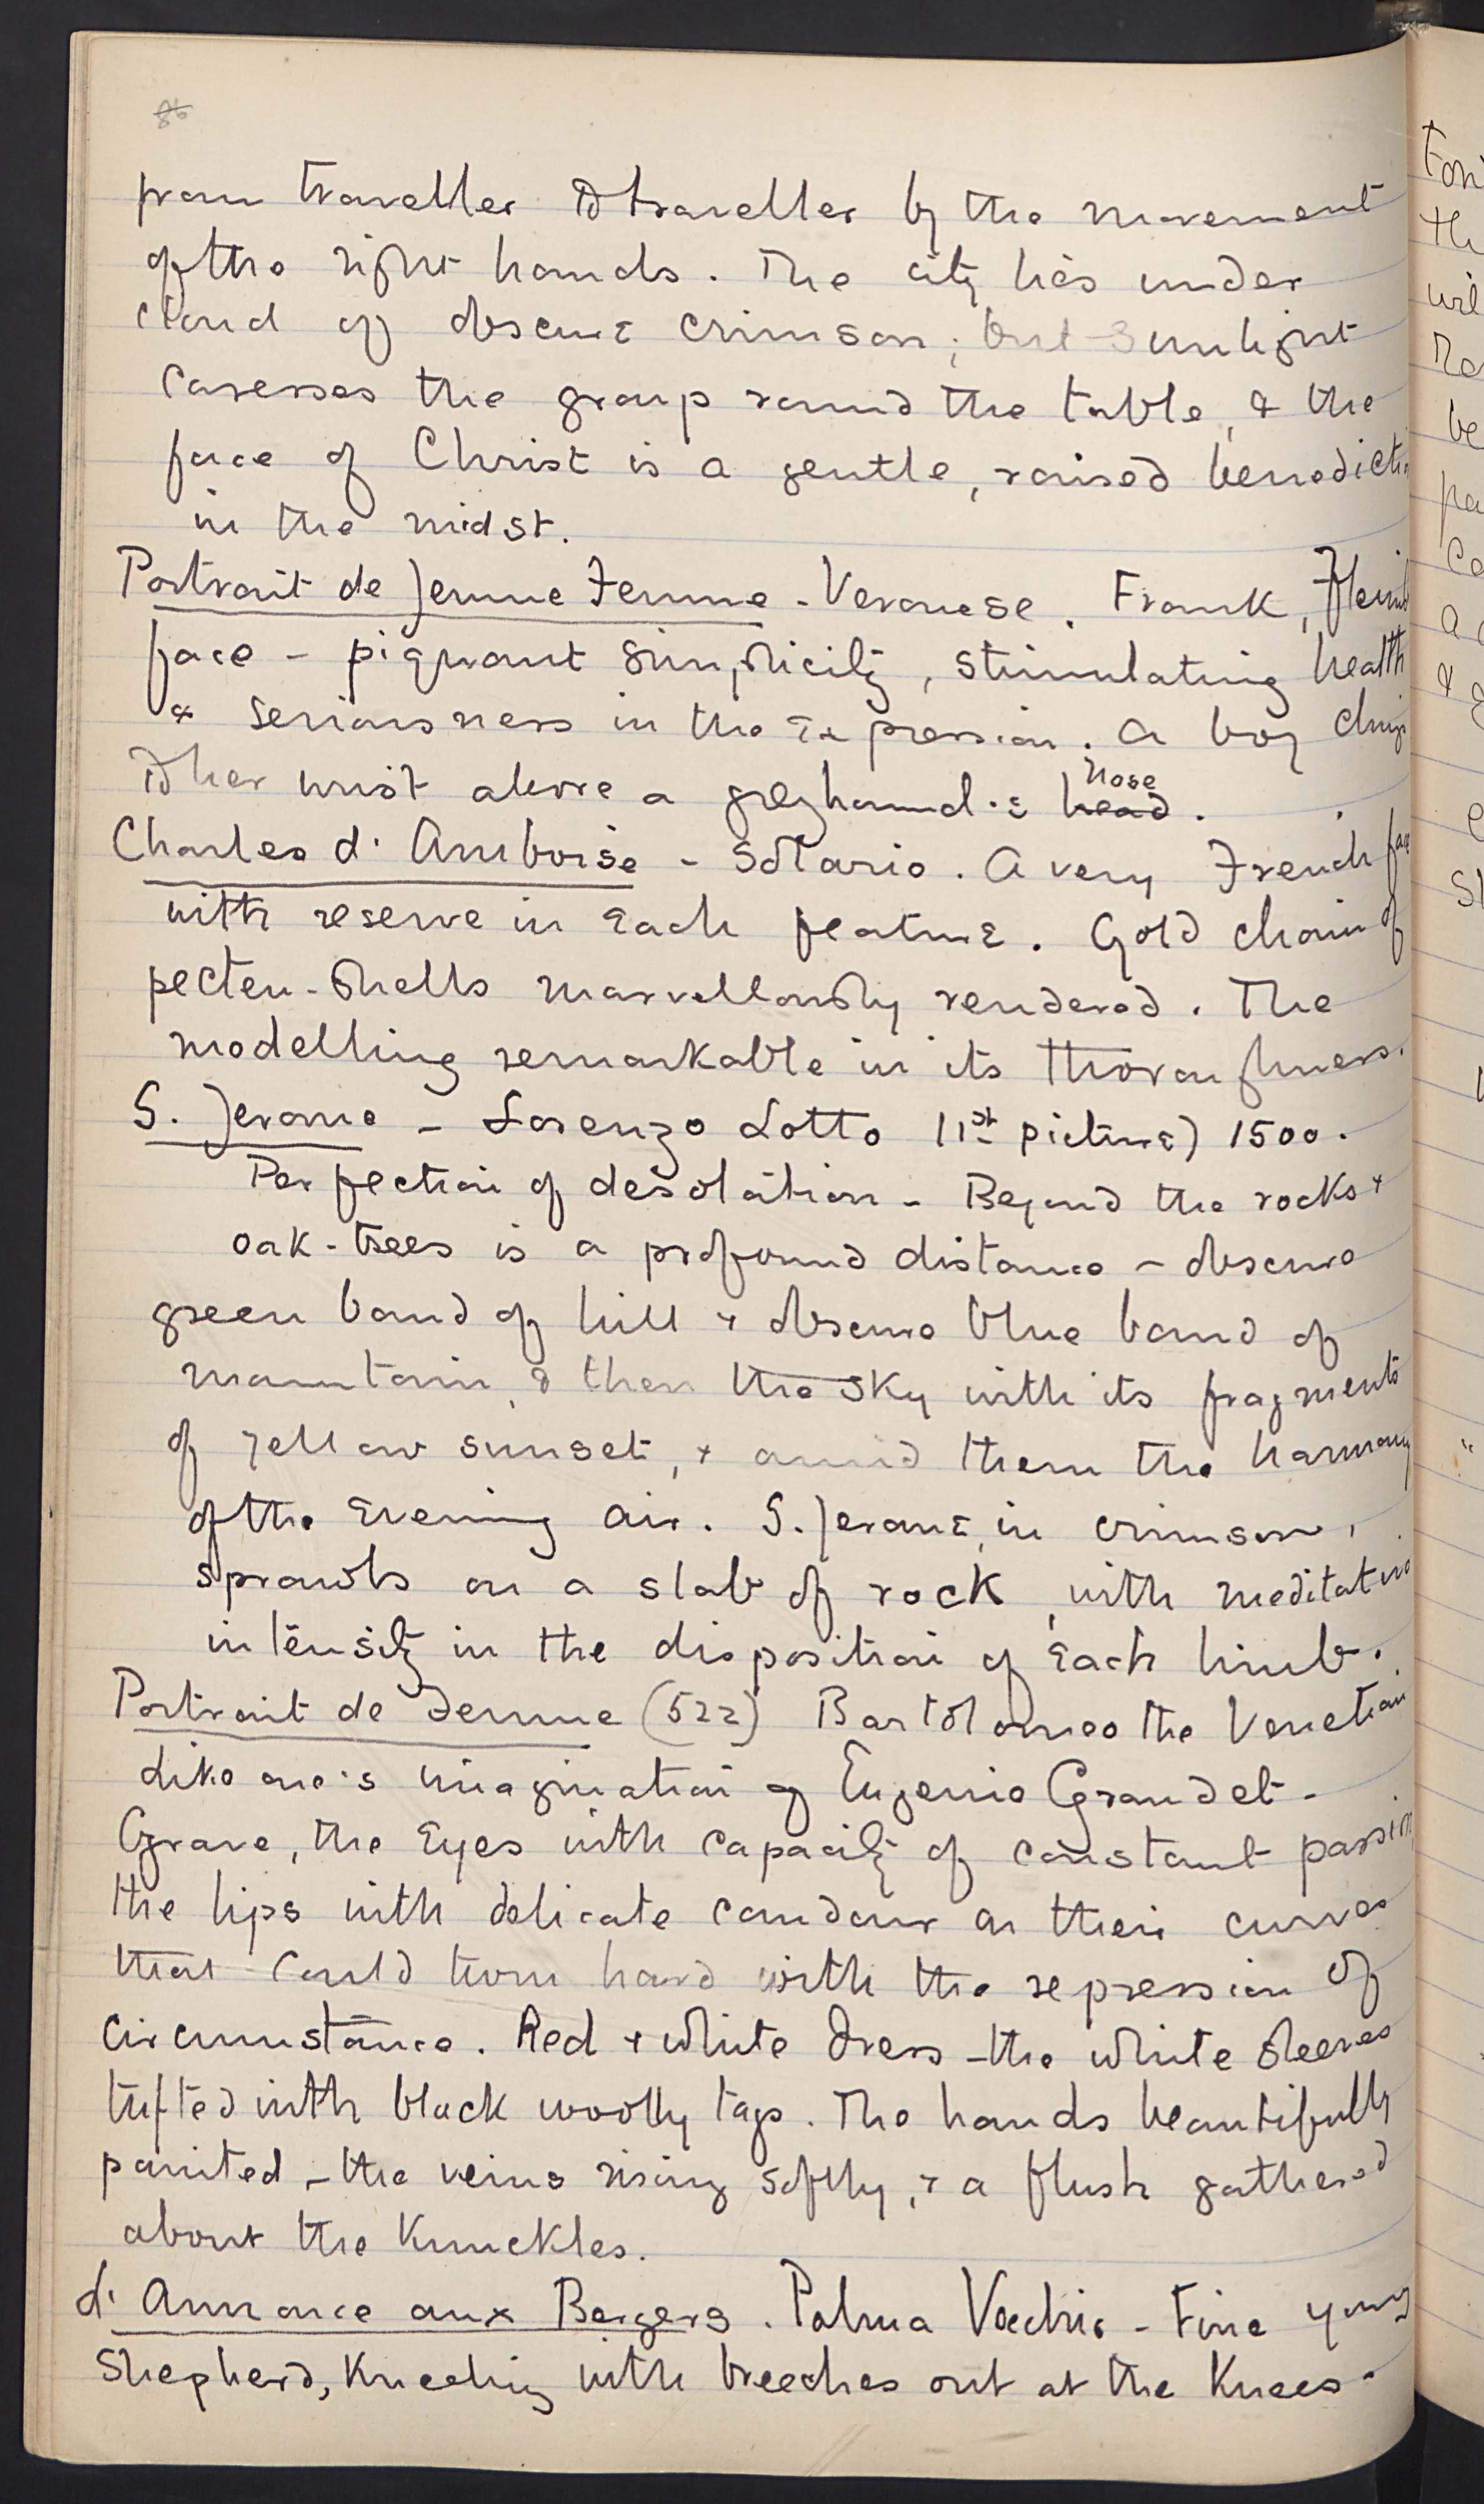 86
from traveller to traveller by the movement
of the right hands. The city lies under
cloud of obscure crimson; but sunlight
caresses the group round the table, & the
face of Christ is a gentle, raised benedicti
in the midst.
Portrait de Jeune Femme - Veronese. Frank,
face - piquant simplicity, stimulating health
& seriousness in the expression. A boy clings
to her wrist above a greyhound's head nose.
Charles d'Amboise - Solario. A very French face
with reserve in each feature. Gold chain of
pecten-shells marvellously rendered. The
modelling remarkable in its thoroughness.
S. Jerome - Lorenzo Lotto (1st picture) 1500.
Perfection of desolation - Beyond the rocks &
oak-trees is a profound distance - obscure
green band of hill & obscure blue band of
mountain, & then the sky with its fragments
of yellow sunset, & amid them the harmony
of the evening air. S. Jerome, in crimson,
sprawls on a slab of rock, with meditative
intensity in the disposition of each limb.
Portrait de Femme (522) Bartolomeo the Venetian
Like one's imagination of Eugenie Grandet -
Grave, the eyes with capacity of constant passion,
the lips with delicate candour on their curves
that could turn hard with the repression of
circumstance. Red & white dress - the white sleeves
tufted with black woolly tags. The hands beautifully
painted - the veins rising softly, & a flush gathered
about the knuckles.
L'Annonce aux Bergers. Palma Vecchio - Fine young
shepherd, kneeling with breeches out at the knees -